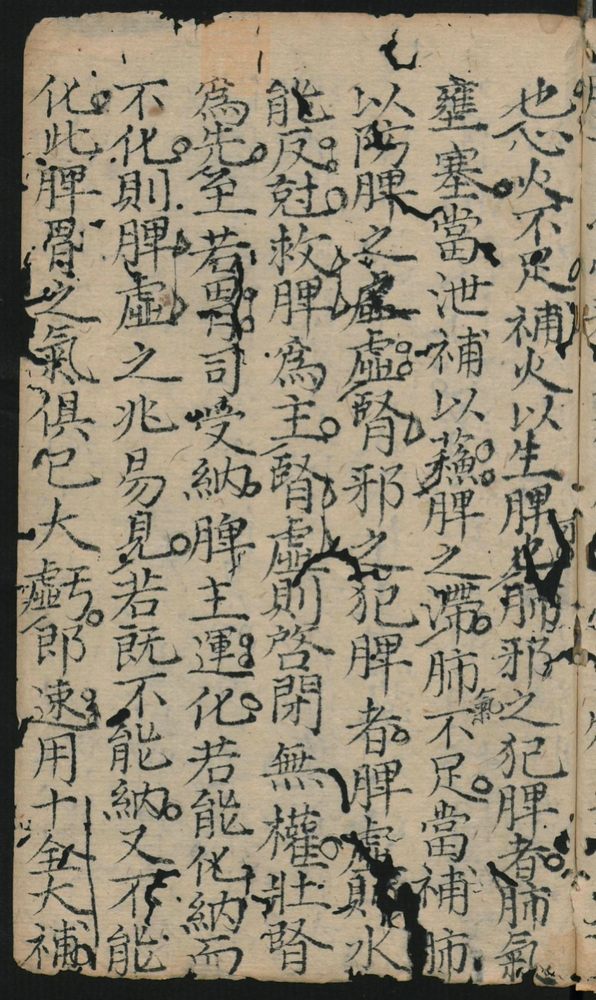 也心火不足補火以生脾也肺邪之犯脾者肺氣
壅塞當泄補以蘓脾之滯肺氣不足當補肺
以防脾之虛虛腎邪之犯脾者脾虛則水
能反尅救脾爲主腎虛則啓閉無權壯腎
爲先至若胃司受納脾主運化若能化納而
不化則脾虛之兆易見若既不能納又不能
化此脾胃之氣俱已大虧即速用十全大補